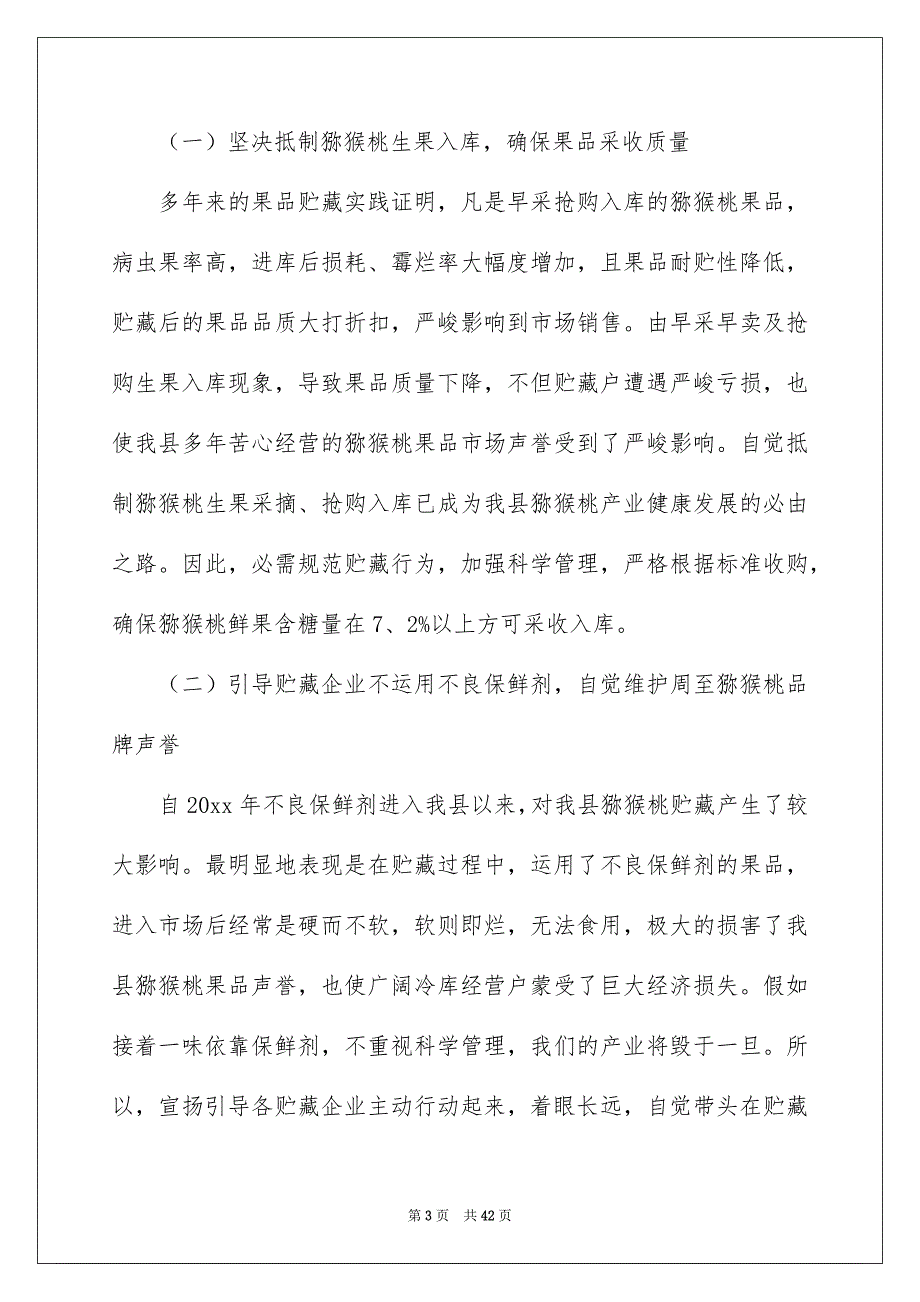 （一）坚决抵制猕猴桃生果入库，确保果品采收质量
多年来的果品贮藏实践证明，凡是早采抢购入库的猕猴桃果品，
病虫果率高，进库后损耗、霉烂率大幅度增加，且果品耐贮性降低，
贮藏后的果品品质大打折扣，严峻影响到市场销售。由早采早卖及抢
购生果入库现象，导致果品质量下降，不但贮藏户遭遇严峻亏损，也
使我县多年苦心经营的猕猴桃果品市场声誉受到了严峻影响。自觉抵
制猕猴桃生果采摘、抢购入库已成为我县猕猴桃产业健康发展的必由
之路。因此，必需规范贮藏行为，加强科学管理，严格根据标准收购，
确保猕猴桃鲜果含糖量在 7、2%以上方可采收入库。
（二）引导贮藏企业不运用不良保鲜剂，自觉维护周至猕猴桃品
牌声誉
自 20xx 年不良保鲜剂进入我县以来，对我县猕猴桃贮藏产生了较
大影响。最明显地表现是在贮藏过程中，运用了不良保鲜剂的果品，
进入市场后经常是硬而不软，软则即烂，无法食用，极大的损害了我
县猕猴桃果品声誉，也使广阔冷库经营户蒙受了巨大经济损失。假如
接着一味依靠保鲜剂，不重视科学管理，我们的产业将毁于一旦。所
以，宣扬引导各贮藏企业主动行动起来，着眼长远，自觉带头在贮藏
第 3 页 共 42 页